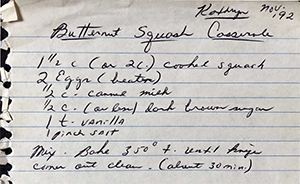 Kathryn Nov. '92
Butternut Squash Casserole
1 1/2 c (or 2c.) cooked squash
2 Eggs (beaten)
1/2 c. canned milk
1/2 c. (or less) dark brown sugar
1 t. vanilla
1 pinch salt
Mix. Bake 350° t. until knife
comes out clean. (about 30 min)